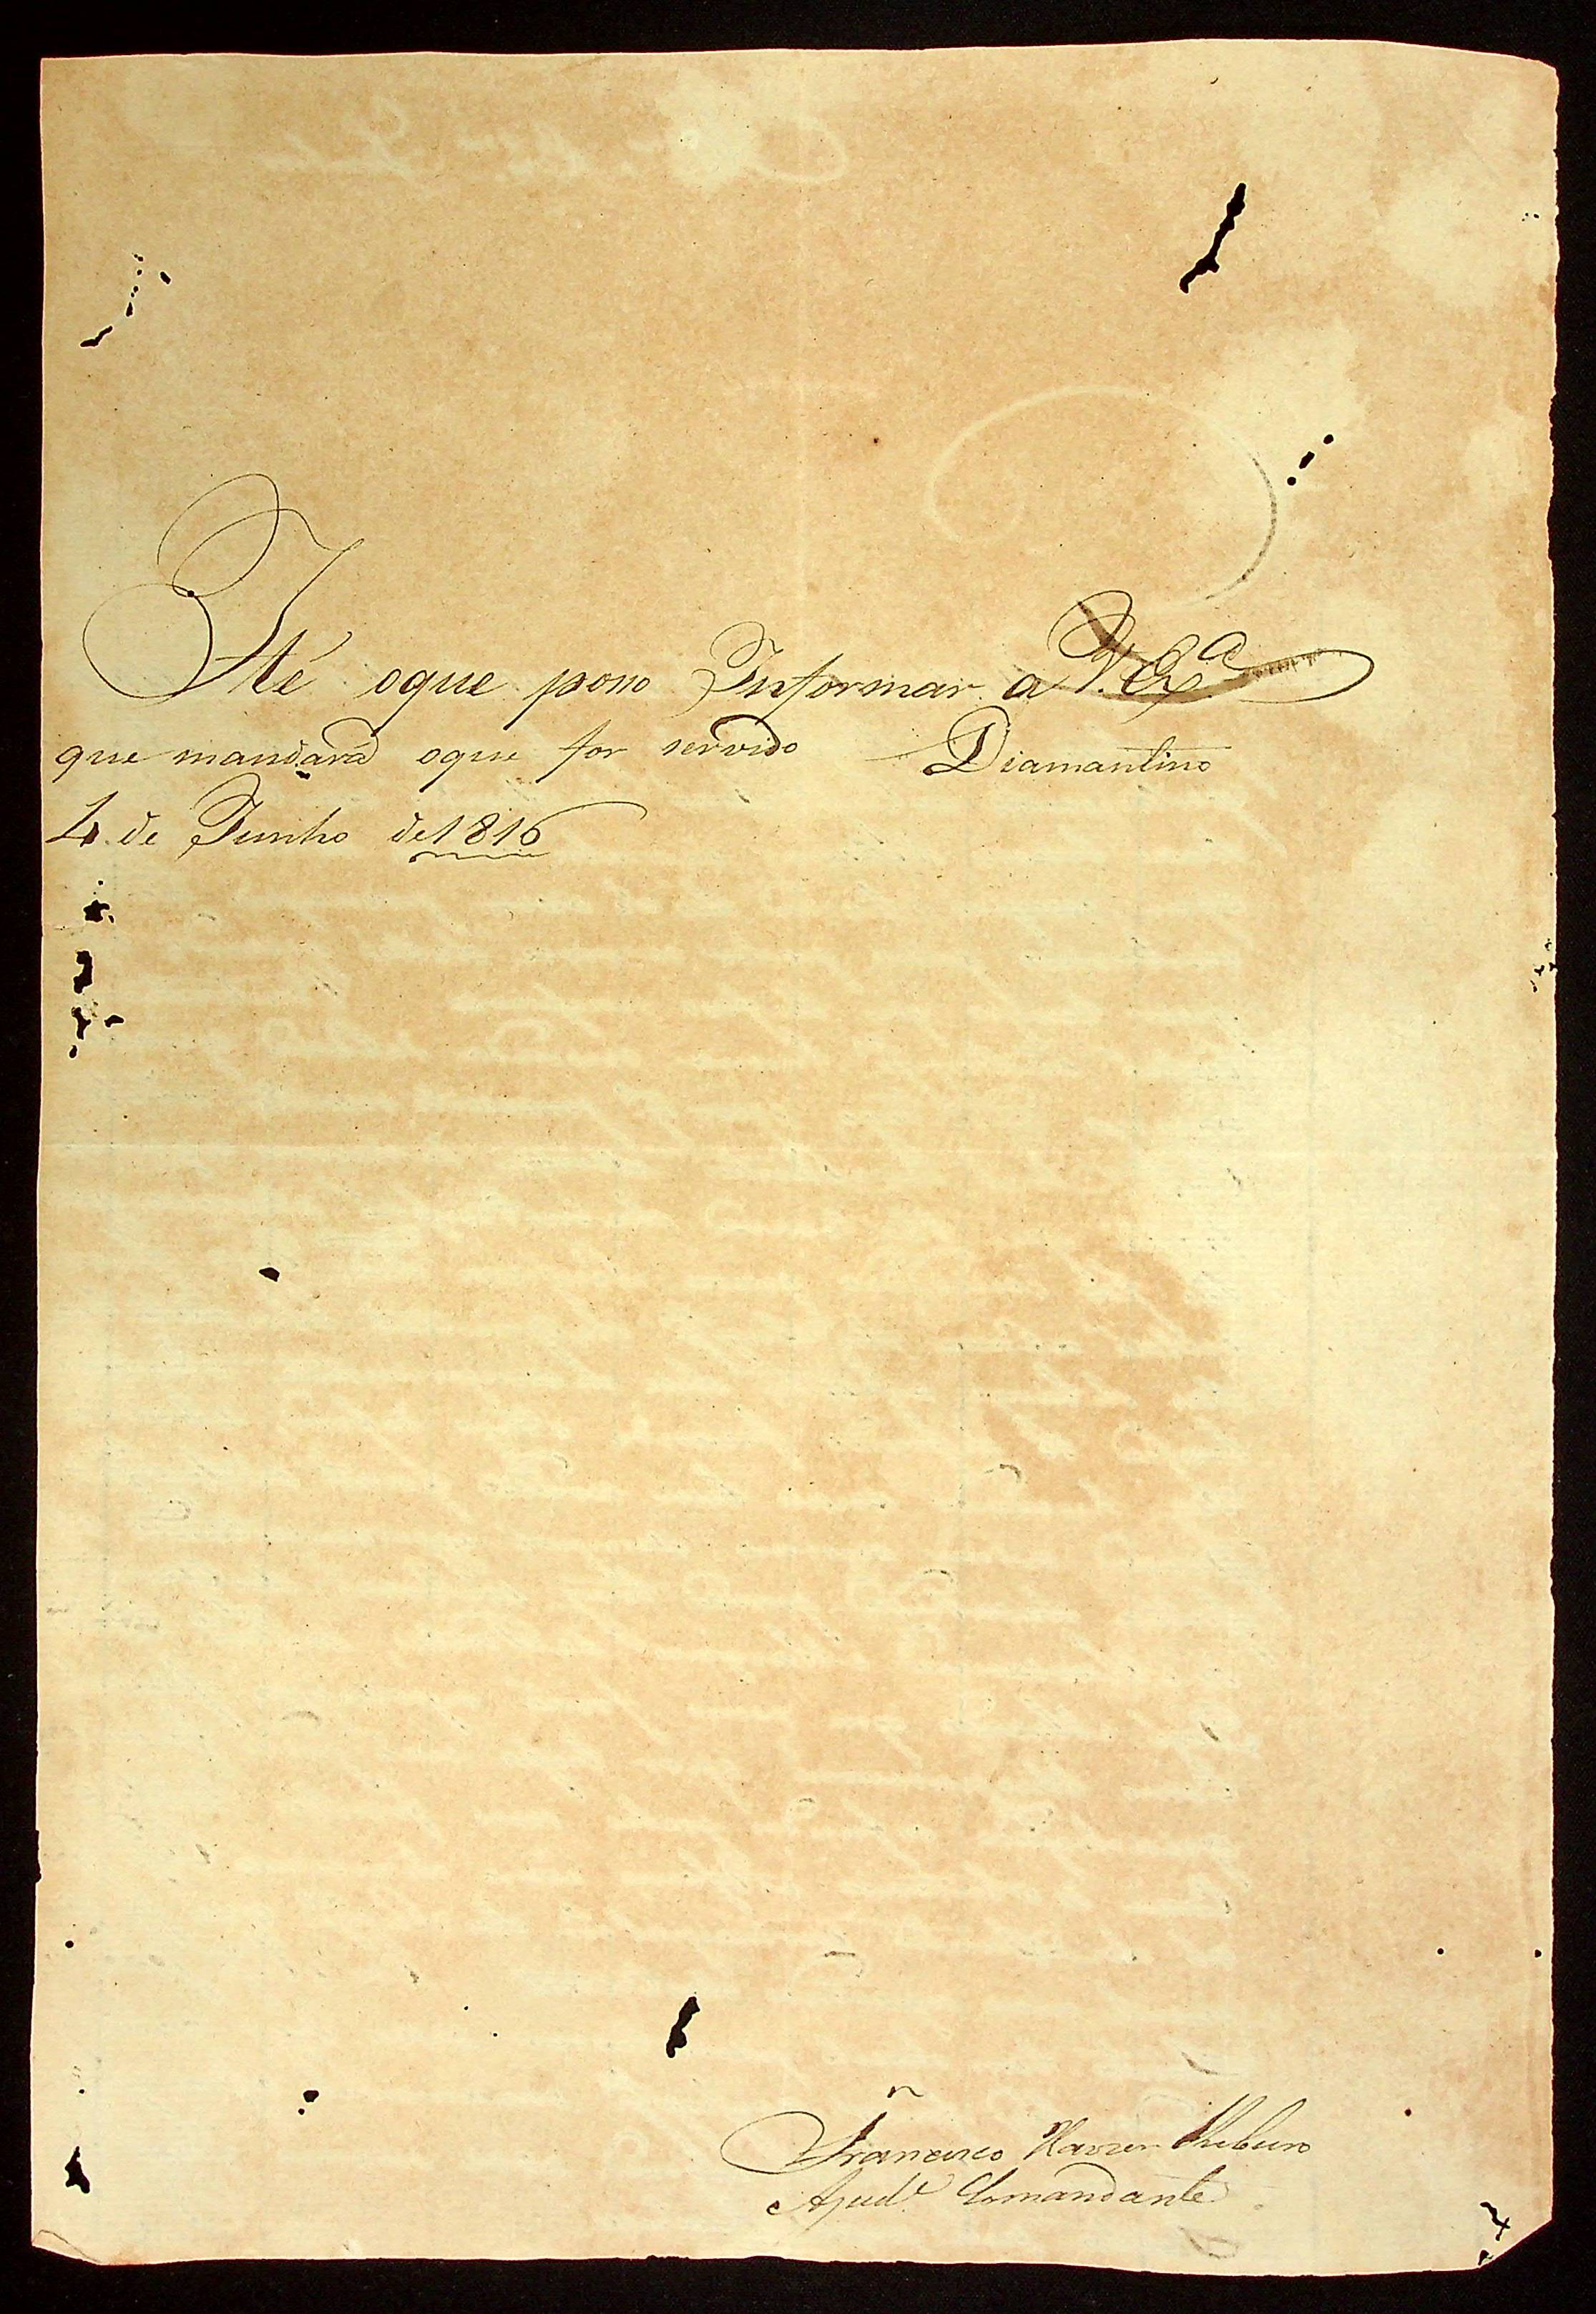 Hé oque posso Informar a V. Exª
que mandará oque for servido Diamantino
4 de Junho de 1816
Francisco Xavier Ribeiro
Ajudᵉ Comandante